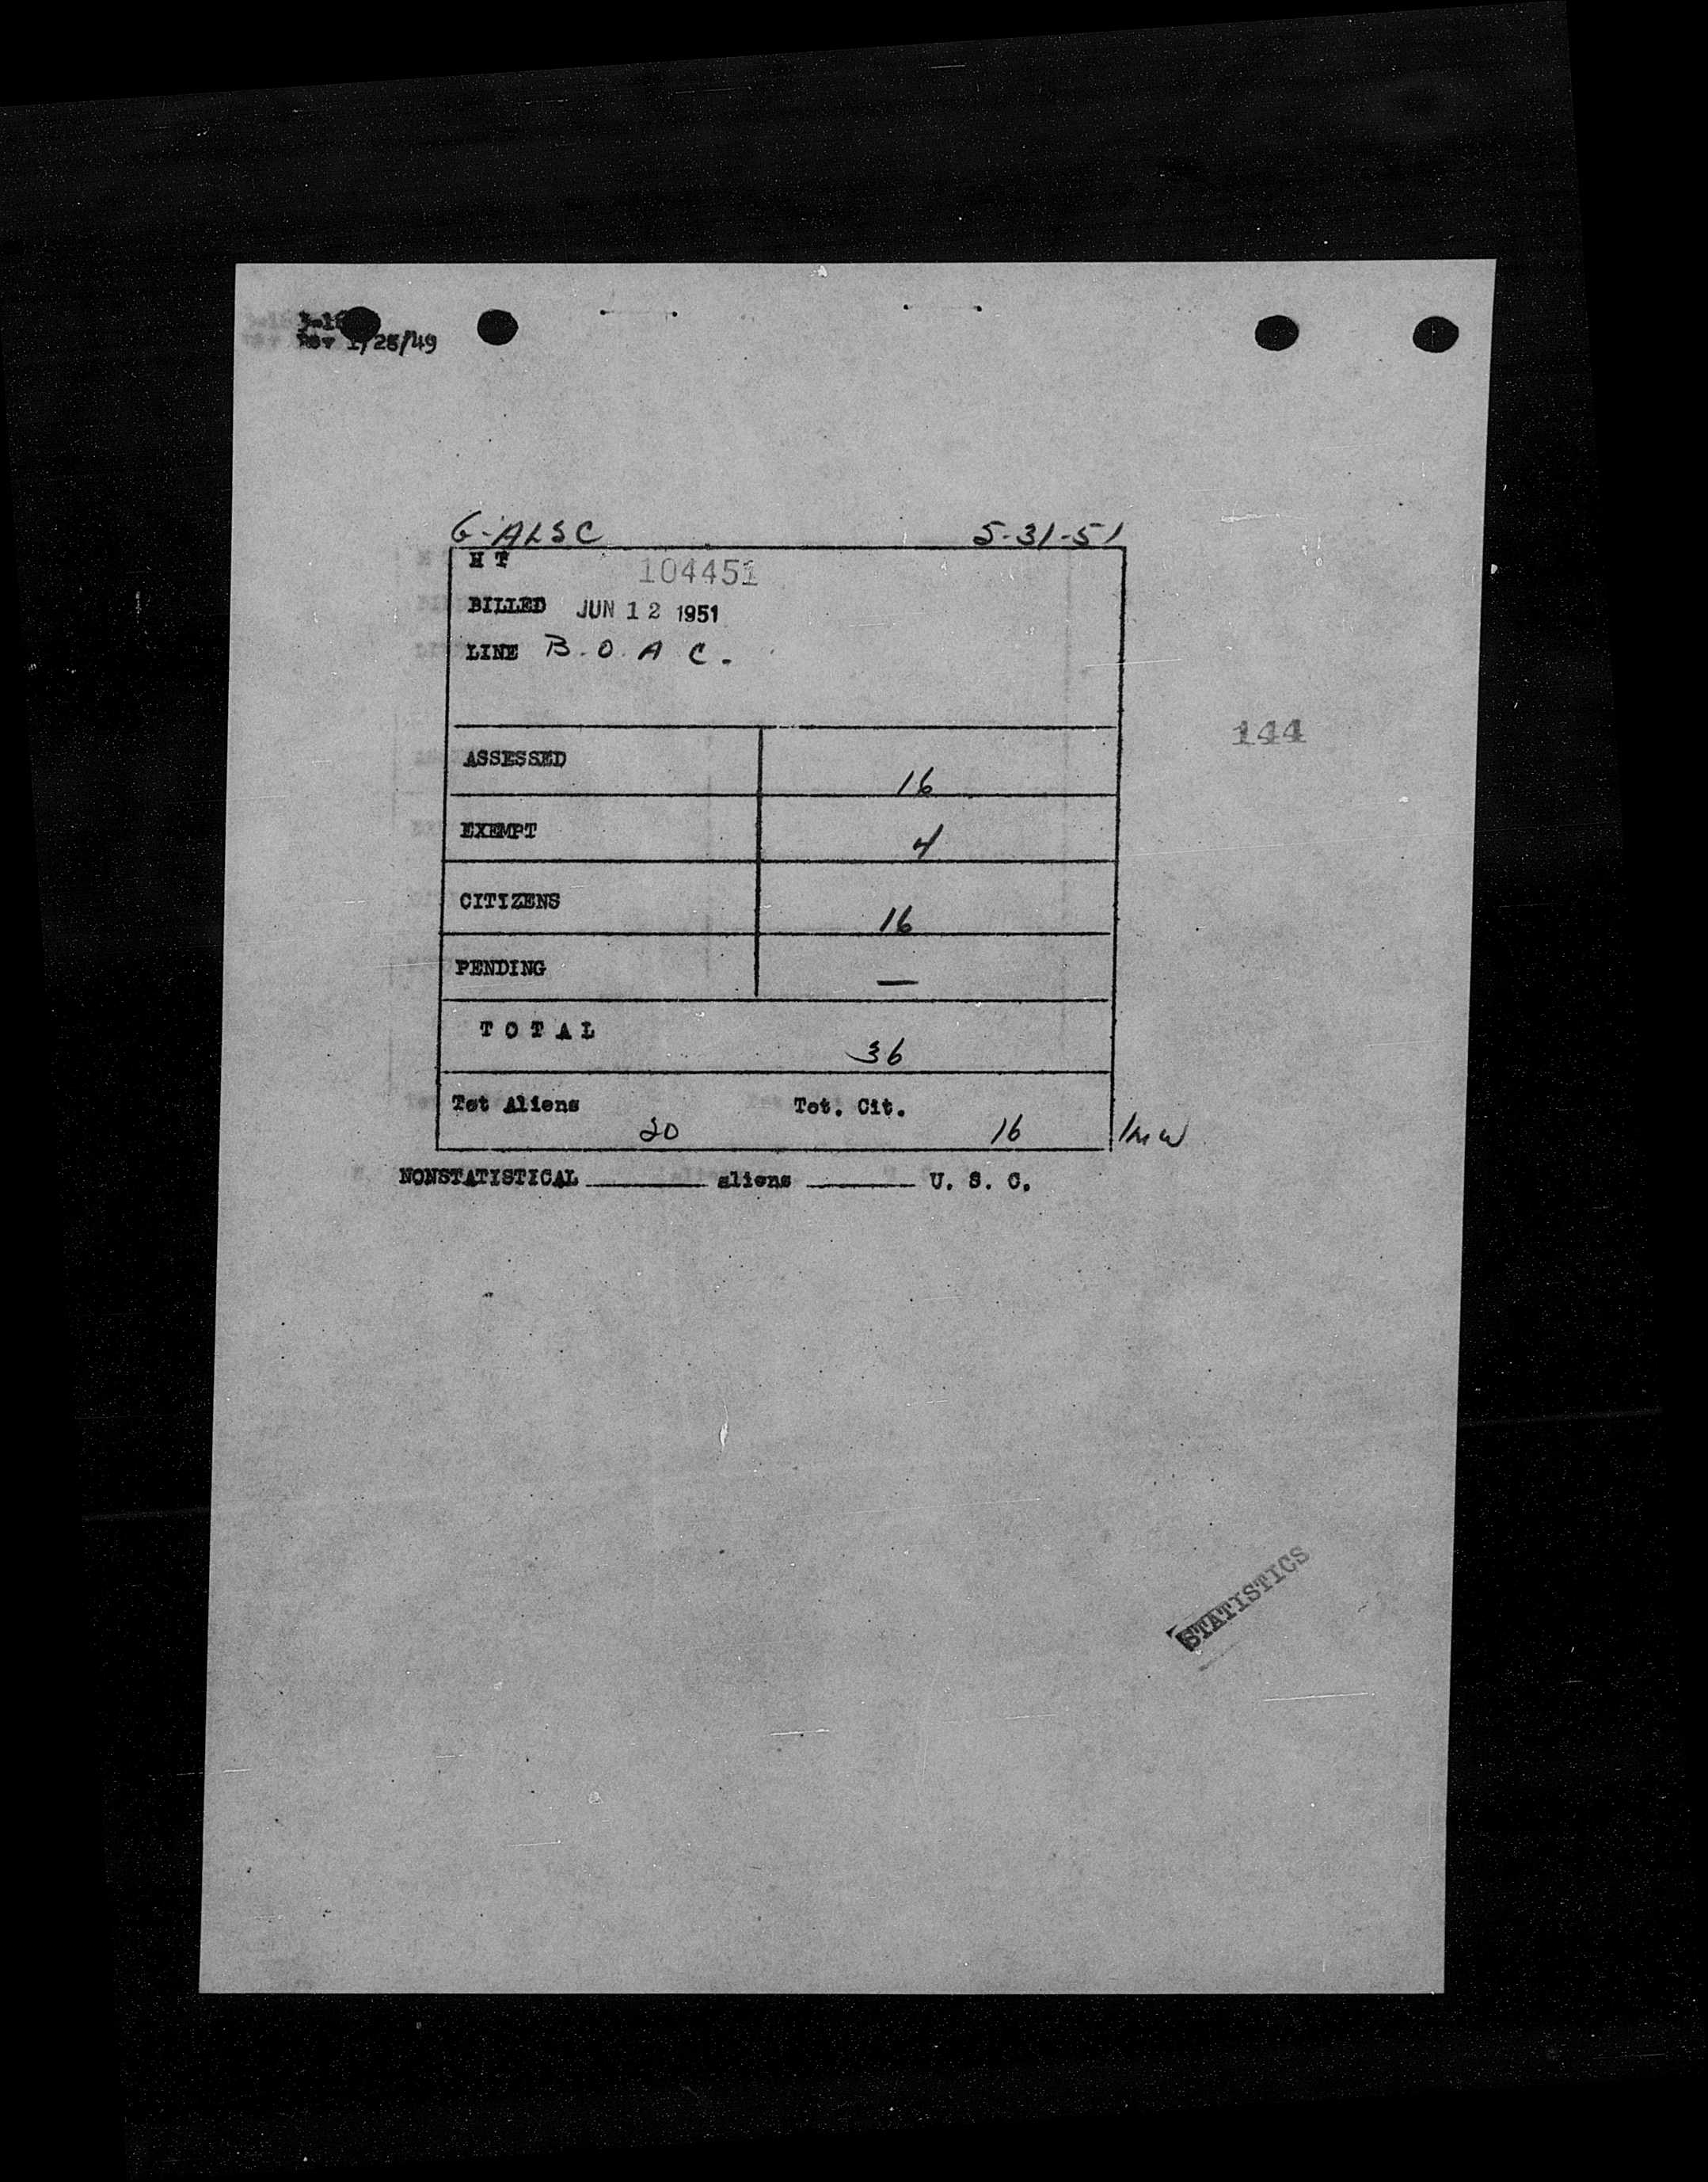 Rev 1/28/49
G-ALSC 5-31-51
H T 104451
BILLED JUN 12 1951
LINE B.O.A C.
144
ASSESSED 16
EXEMPT 4
CITIZENS 16
PENDING —
T O T A L 36
Tot Aliens 20 Tot. Cit. 16
NONSTATISTICAL ______ aliens ______ U. S. C.
STATISTICS